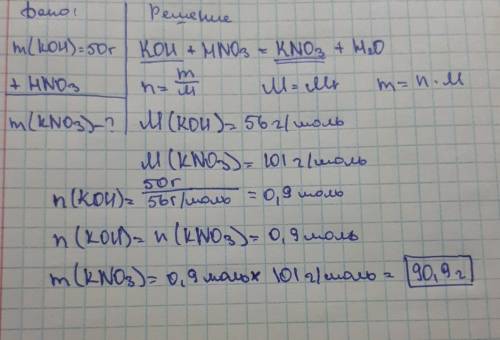 Дано:
m(KOH)=50г
+ HNO3
m(KNO3)-?
Решение
KOH + HNO3 = KNO3 + H2O
n = m/M M = Mr m = n · M
M(KOH) = 56 г/моль
M(KNO3) = 101 г/моль
n(KOH) = 50г/56г/моль = 0,9 моль
n(KOH) = n(KNO3) = 0,9 моль
m(KNO3) = 0,9 моль × 101 г/моль = 90,9 г